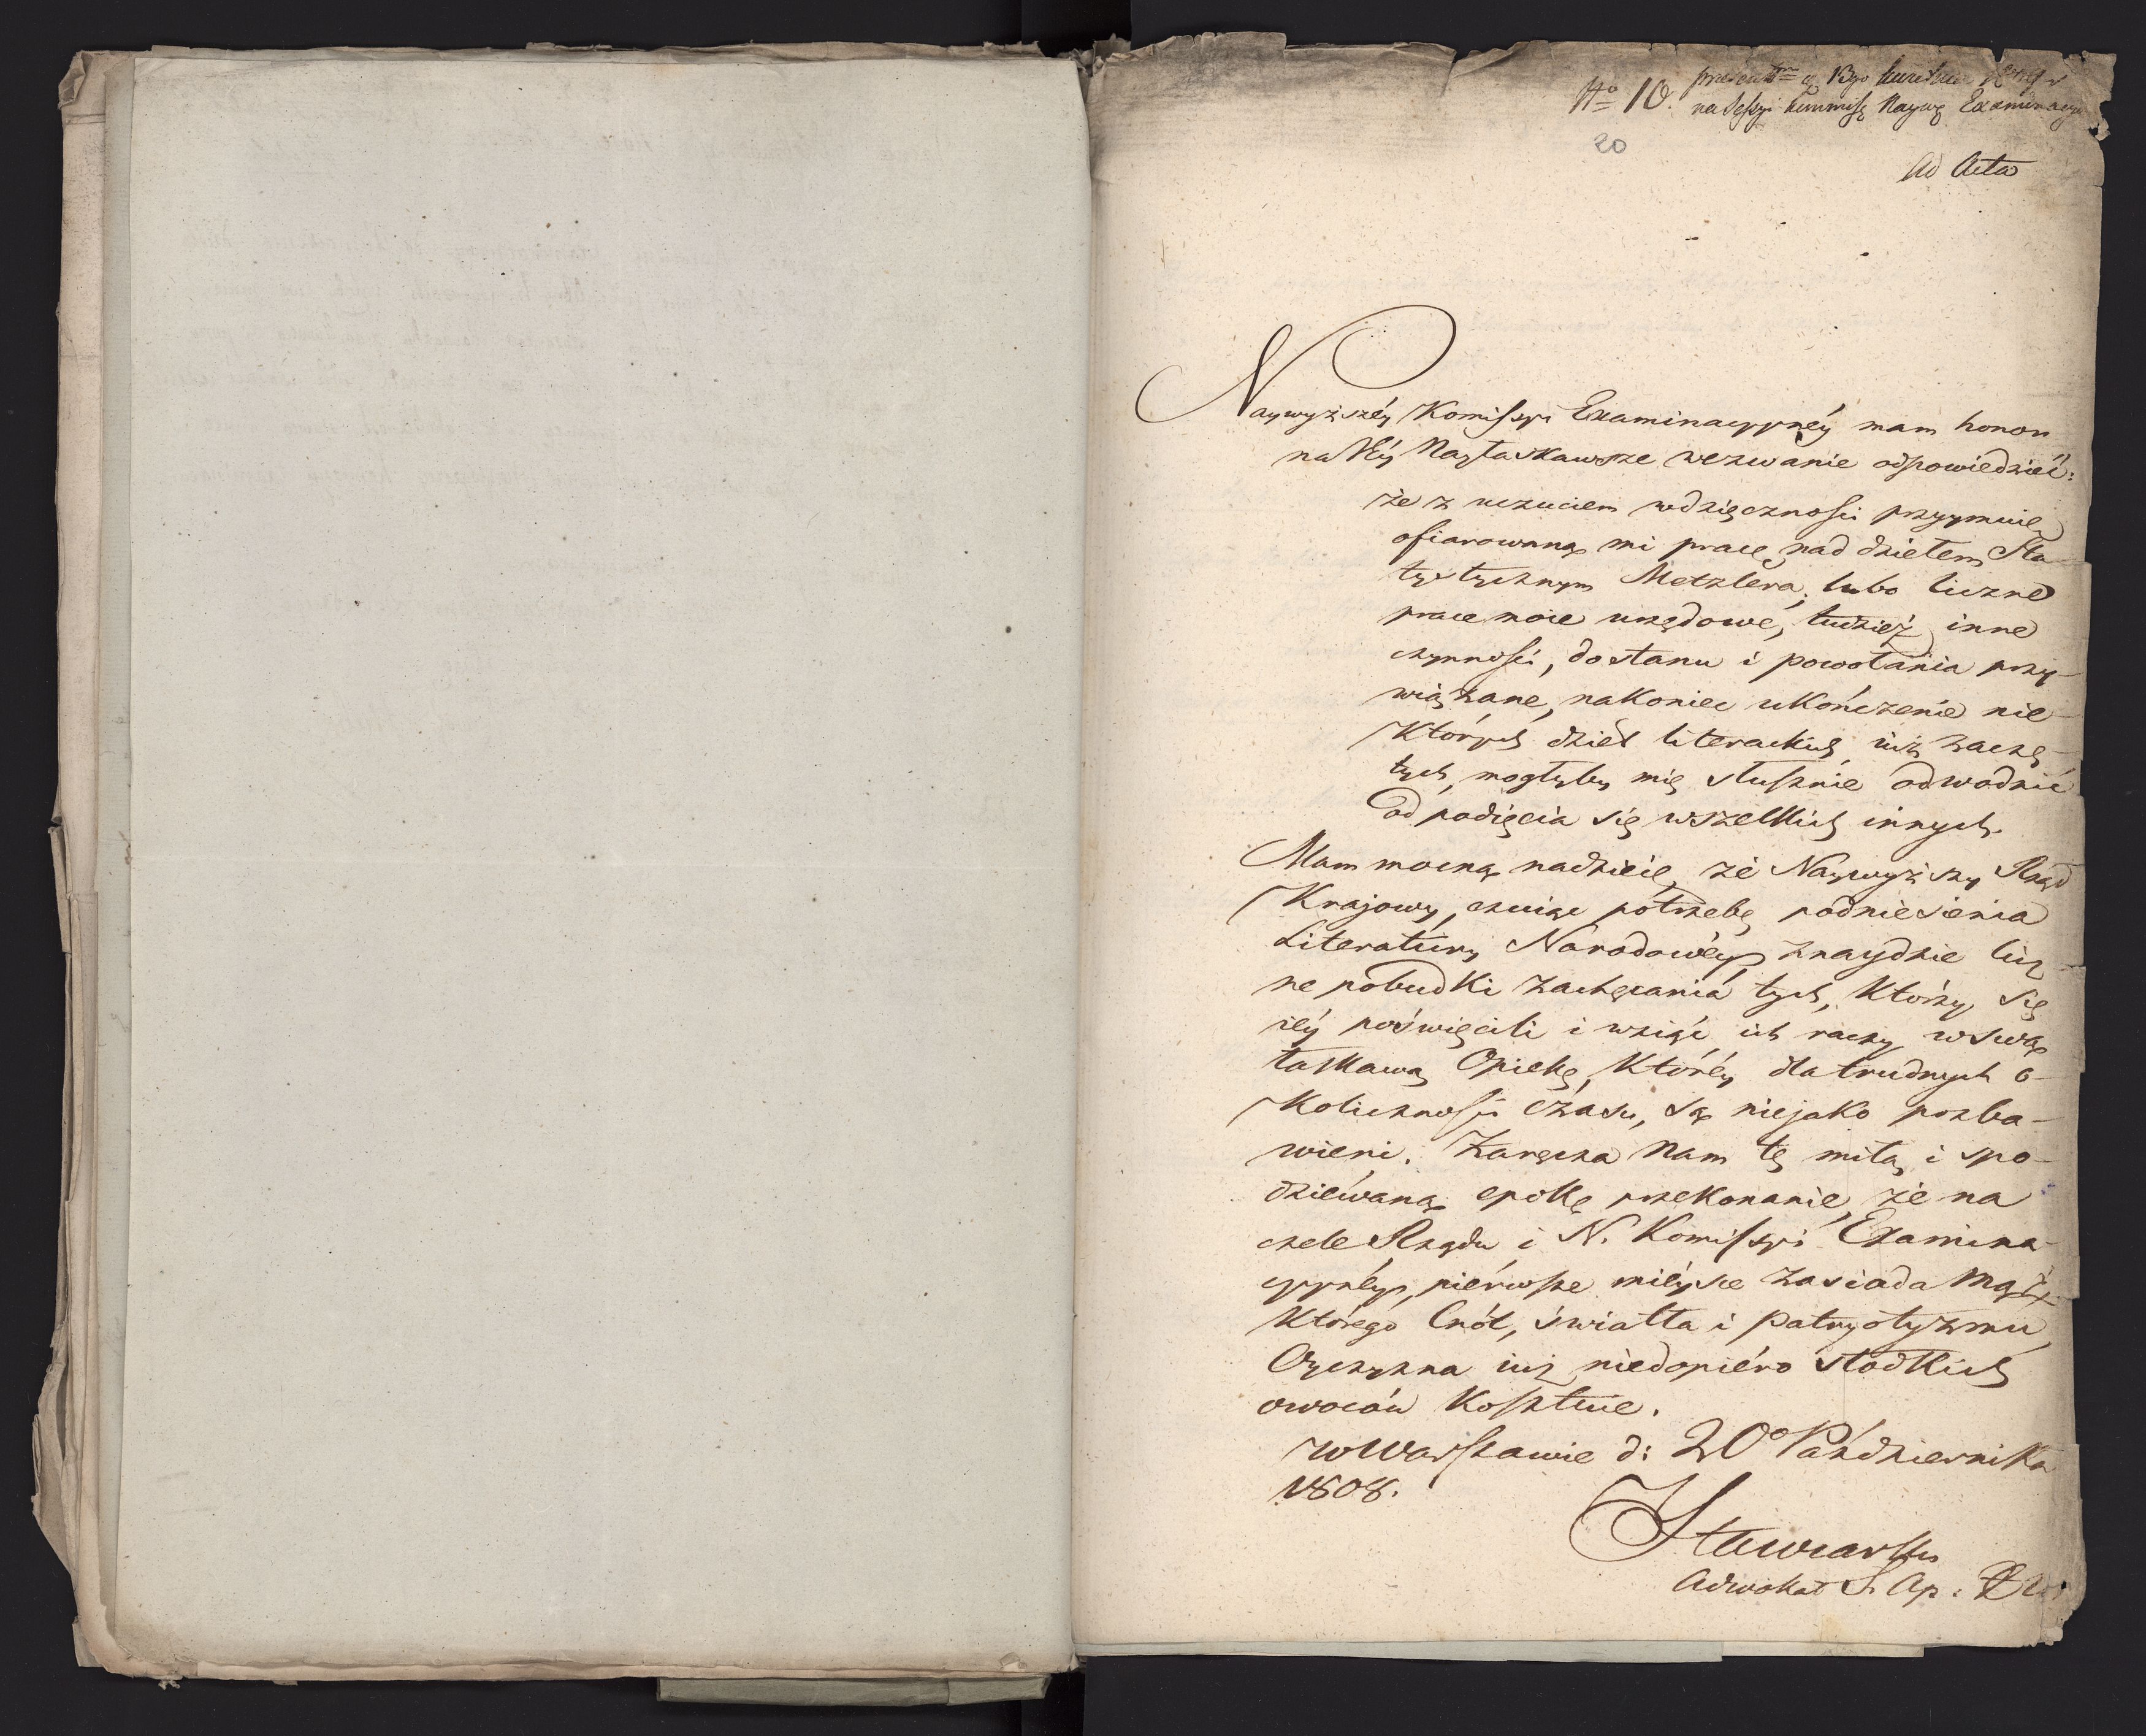 No 10.
na Sessyi Kommissy Naywg Examinacyi
20
Ad Acta
Naywyższéy Komissyi Examinacyynéy mam honor
na Jéy Nayłaskawsze wezwanie odpowiedzieć:
że z uczuciem wdzięczności przyymuię
ofiarowaną mi pracę nad dziełem Sta-
tystycznym Metzlera; lubo liczne
prace moie urzędowe, tudzież inne
czynności, do stanu i powołania przy-
wiązane, nakoniec ukończenie nie-
których dzieł literackich iuż zaczę-
tych, mogłyby mię słusznie odwodnić
od podięcia się wszelkich innych.
Mam mocną nadzieię, że Naywyższy Rząd
Krajowy, czuiąc potrzebę podniesienia
Literatury Narodowéy, znaydzie licz-
ne pobudki zachęcania tych, którzy się
iéy poświęcili i wziąć ich raczy w swą
łaskawą Opiekę, któréy dla trudnych o-
koliczności czasu, są niejako pozba-
wieni. Zaręcza nam tę miłą i spo-
dziéwaną epokę przekonanie, że na
czele Rządu i N. Komissyi Examina-
cyynéy, piérwsze miéysce zasiada Mąż,
którego Cnót, światła i patryotyzmu
Oyczyzna iuż niedopiéro słodkich
owoców kosztuie.
w Warszawie d: 20o Października
1808.
Stawiarski
Adwokat S. Ap: